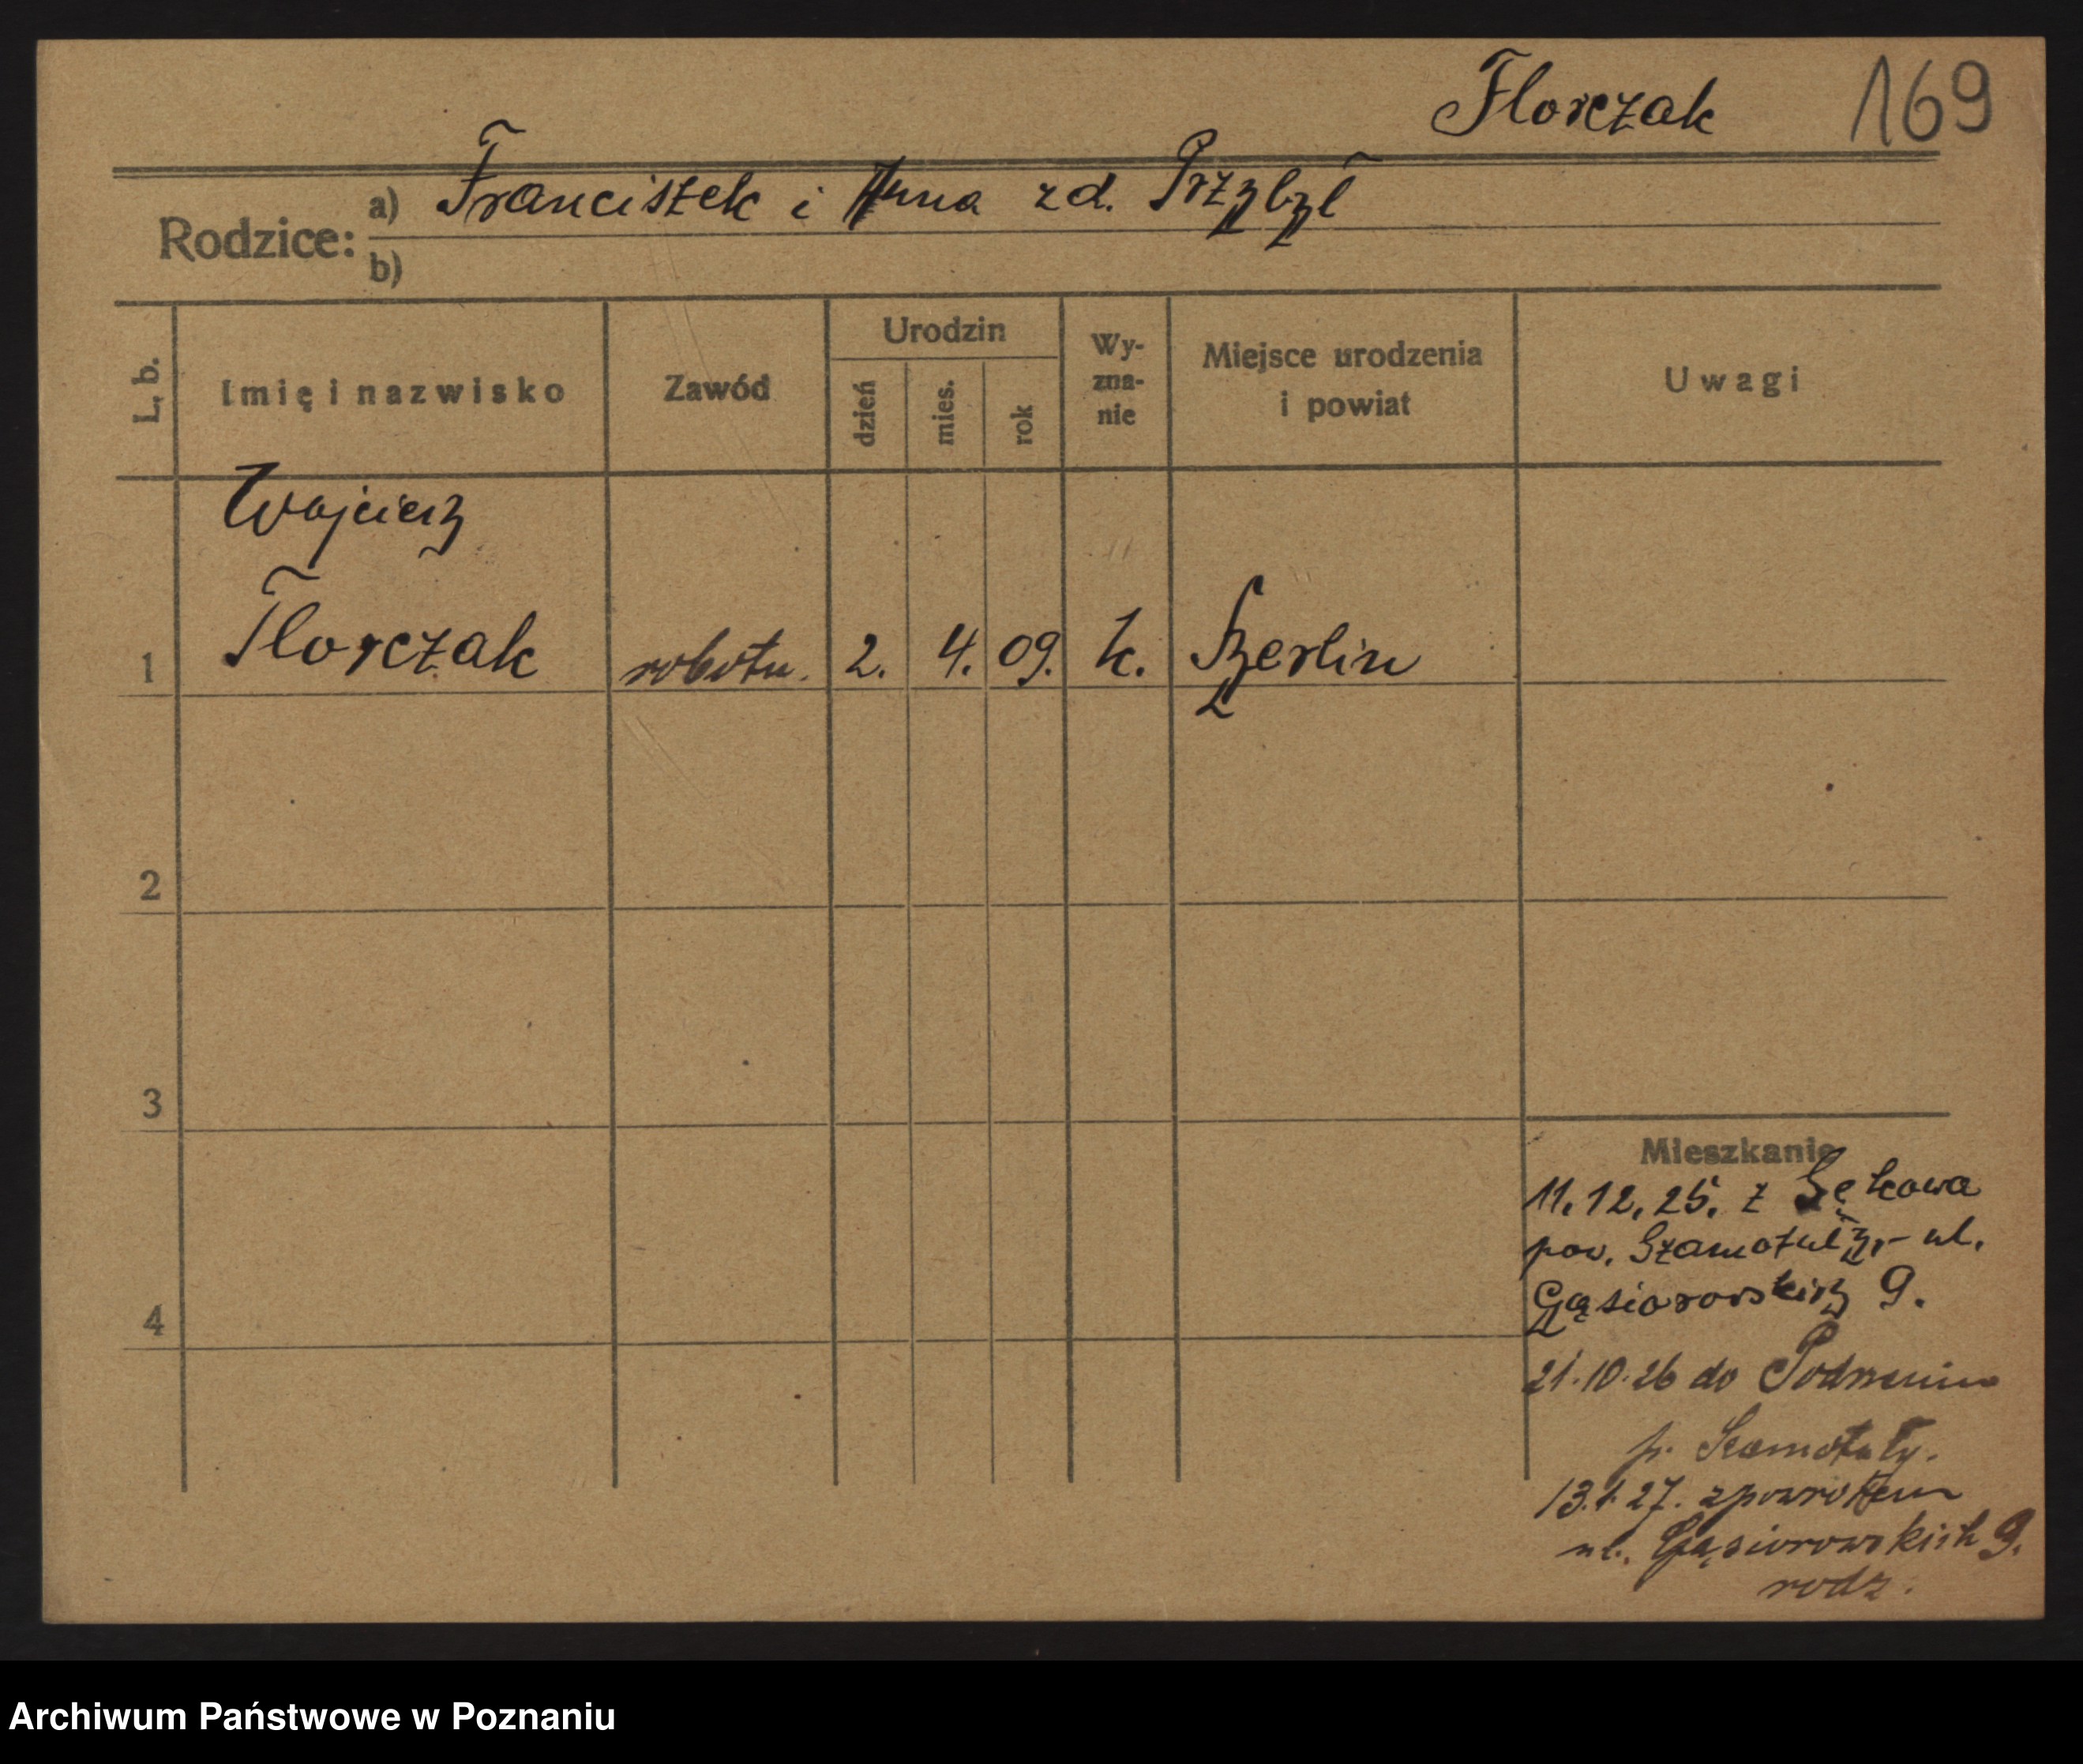 Florczak 169
Rodzice: a) Franciszek i Anna zd. Przybył
b)
L. b. Imię i nazwisko Zawód Urodzin dzień mies. rok Wy-zna-nie Miejsce urodzenia i powiat Uwagi
Wojciech
1 Florczak robotn. 2. 4. 09. k. Berlin
2
3
Mieszkanie
11.12.25. z Sękowa
pow. Szamotuły, - ul.
4 Gąsiorowskich 9.
21.10.26 do
p. Szamotuły.
13.1.27. zpowrotem
ul. Gąsiorowskich 9.
rodz.
Archiwum Państwowe w Poznaniu